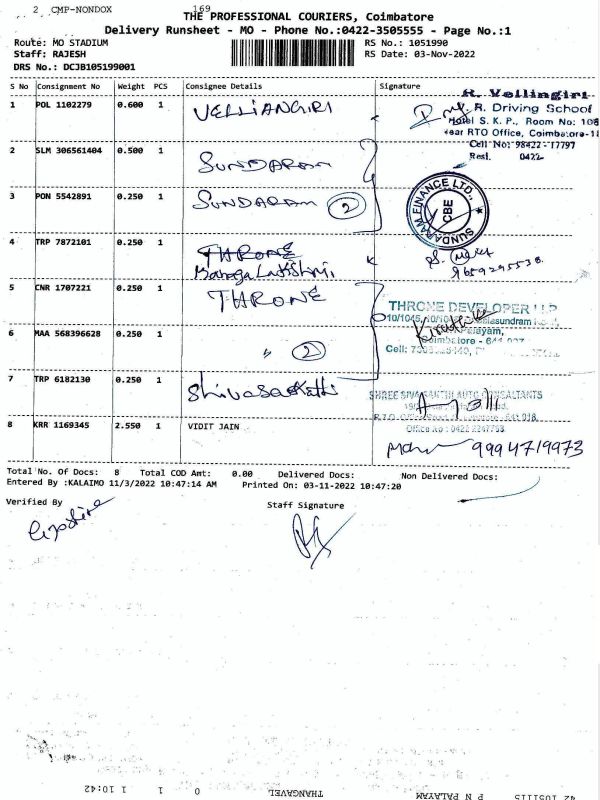 2 CMP-NONDOX 169
THE PROFESSIONAL COURIERS, Coimbatore
Delivery Runsheet - MO - Phone No.:0422-3505555 - Page No.:1
Route: MO STADIUM RS No.: 1051990
Staff: RAJESH RS Date: 03-Nov-2022
DRS No.: DCJB105199001
S No Consignment No Weight PCS Consignee Details Signature
1 POL 1102279 0.600 1 VELLIANGIRI
R. Vellingiri
R. Driving School
Hotel S. K. P., Room No: 108
Near RTO Office, Coimbatore-18
Cell No: 98422-17797
Resi. 0422
2 SLM 306561404 0.500 1 SUNDARAM
3 PON 5542891 0.250 1 SUNDARAM 2
SUNDARAM FINANCE LTD., CBE
4 TRP 7872101 0.250 1 THRONE
9659295538
5 CNR 1707221 0.250 1 THRONE
THRONE DEVELOPER LLP
6 MAA 568396628 0.250 1 " 2
Coimbatore - 641
Cell:
7 TRP 6182130 0.250 1 Shivasakthi
SHREE SIVA SAKTHI AUTO CONSALTANTS
641 018.
Office No : 0422 2247793
8 KRR 1169345 2.550 1 VIDIT JAIN
9994719973
Total No. Of Docs: 8 Total COD Amt: 0.00 Delivered Docs: Non Delivered Docs:
Entered By :KALAIMO 11/3/2022 10:47:14 AM Printed On: 03-11-2022 10:47:20
Verified By Staff Signature
42 1051115 P N PALAYAM THANGAVEL 0 1 1 10:42